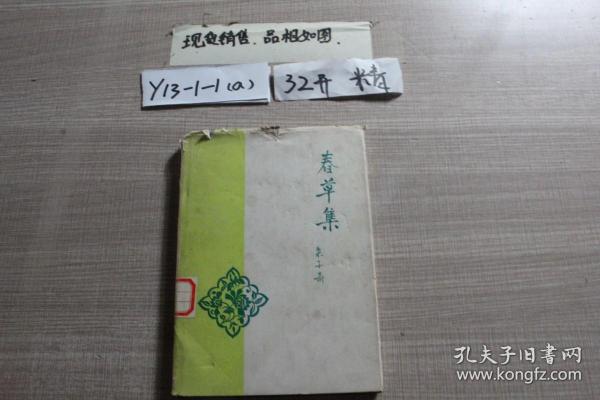 现货销售.品相如图.
Y13-1-1(a)
32开 精
春草集
朱子奇
孔夫子旧书网
www.kongfz.com